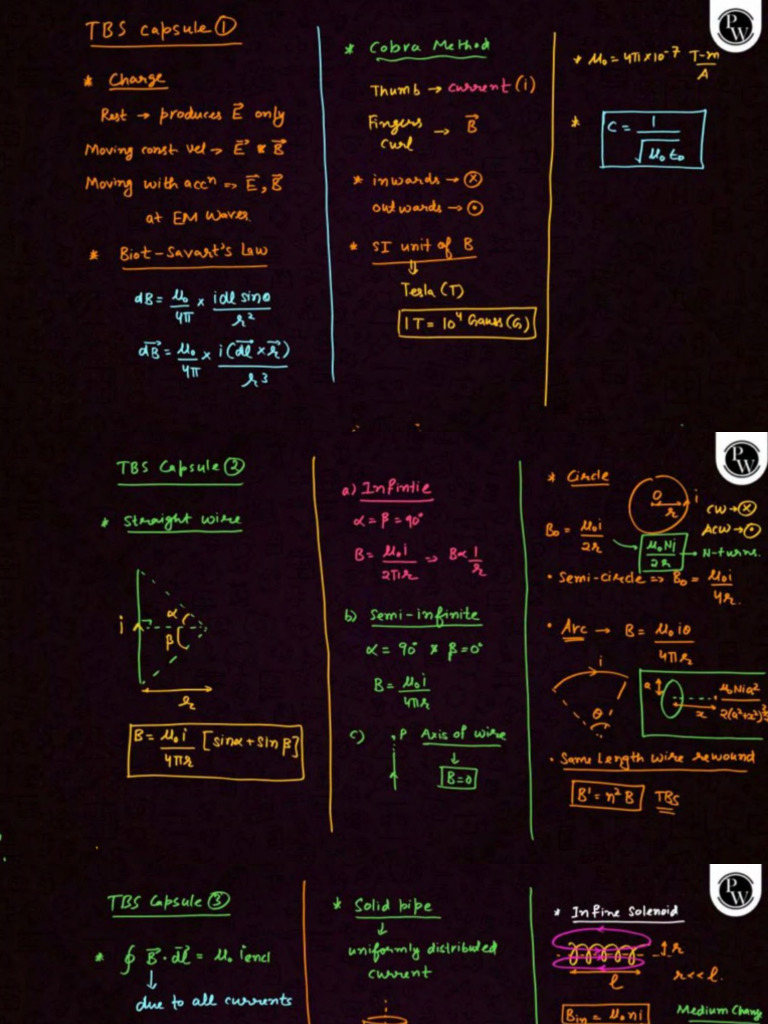 TBS Capsule ①
* Charge
Rest → produces E⃗ only
Moving const vel → E⃗ & B⃗
Moving with accⁿ => E⃗, B⃗
at EM Waves.
* Biot-Savart's Law
dB = μ₀/4π × idl sinθ/r²
d⃗B = μ₀/4π × i(d⃗l × r⃗)/r³
* Cobra Method
Thumb → current (i)
Fingers curl → B⃗
* inwards → ⊗
outwards → ⊙
* SI unit of B
⇓
Tesla (T)
1 T = 10⁴ Gauss (G)
* μ₀ = 4π × 10⁻⁷ T-m/A
* C = 1/√μ₀ε₀
PW
TBS Capsule ②
* Straight wire
i α β
r
B = μ₀i/4πr [sinα + sinβ]
a) Infintie
α = β = 90°
B = μ₀i/2πr => B ∝ 1/r
b) Semi-infinite
α = 90° & β = 0°
B = μ₀i/4πr
c) P Axis of wire
↓
B = 0
* Circle
O r i
CW → ⊗
ACW → ⊙
B₀ = μ₀i/2r
μ₀Ni/2r → N-turns.
• Semi-circle => B₀ = μ₀i/4r.
• Arc → B = μ₀iθ/4πr
i θ
a x μ₀Nia²/2(a²+x²)^3/2
• Same Length wire rewound
B' = n²B TBS
PW
TBS Capsule ③
* ∮ B⃗ · d⃗l = μ₀ iencl
↓
due to all currents
* Solid pipe
↓
uniformly distributed
current
* Infine Solenoid
r
l r << l.
Bin = μ₀ni
Medium Change
PW